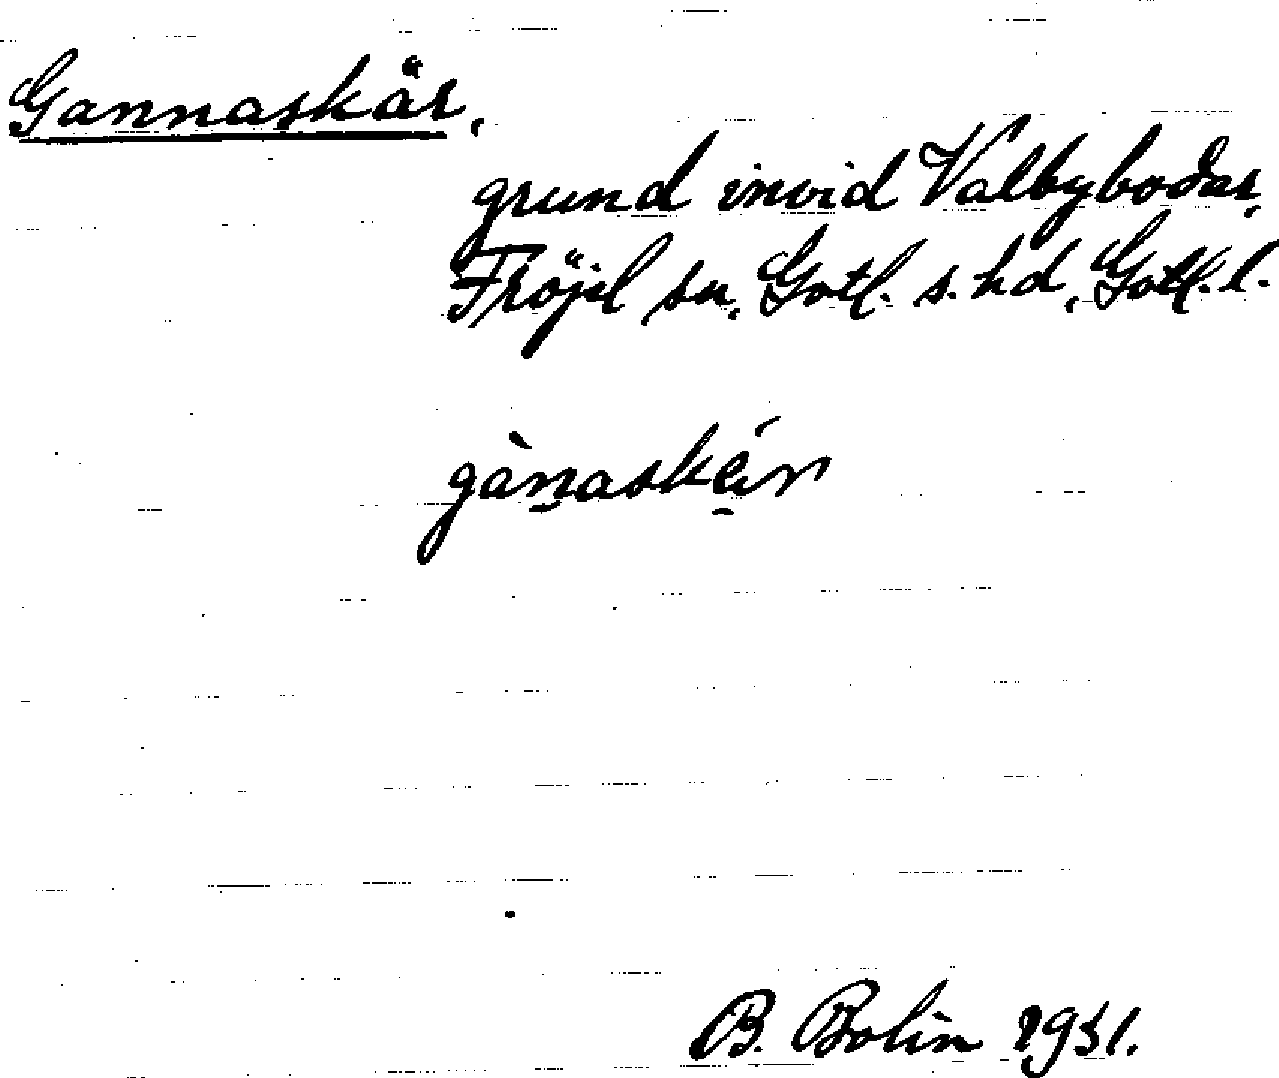 Gannaskär,
grund invid Valbybodar,
Fröjel sn, Gotl. s. hd, Gotl. l.
gànaskä́r
B. Bolin 1931.